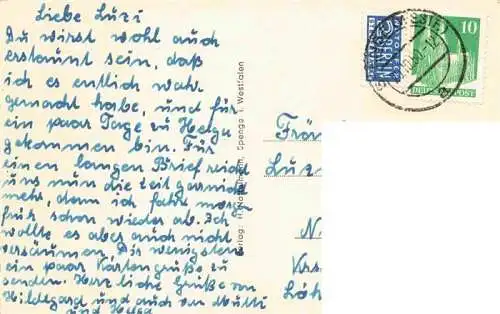 Liebe Luzi
Du wirst wohl auch
erstaunt sein, daß
ich es entlich wahr
gemacht habe, und für
ein paar Tage zu Helga
gekommen bin. Für
einen langen Brief reicht
uns nun die Zeit garnicht
mehr, denn ich fahre morgen
früh schon wieder ab. Ich
wollte es aber auch nicht
versäumen. Dir wenigstens
ein paar Kartengrüße zu
senden. Herzliche Grüße von
Hildegard und auch von Mutti
und Helga
Verlag: H. Spenge i. Westfalen
NOTOPFER
2
BERLIN
10
DEUTSCHE POST
Frö
Luz
N
Löh